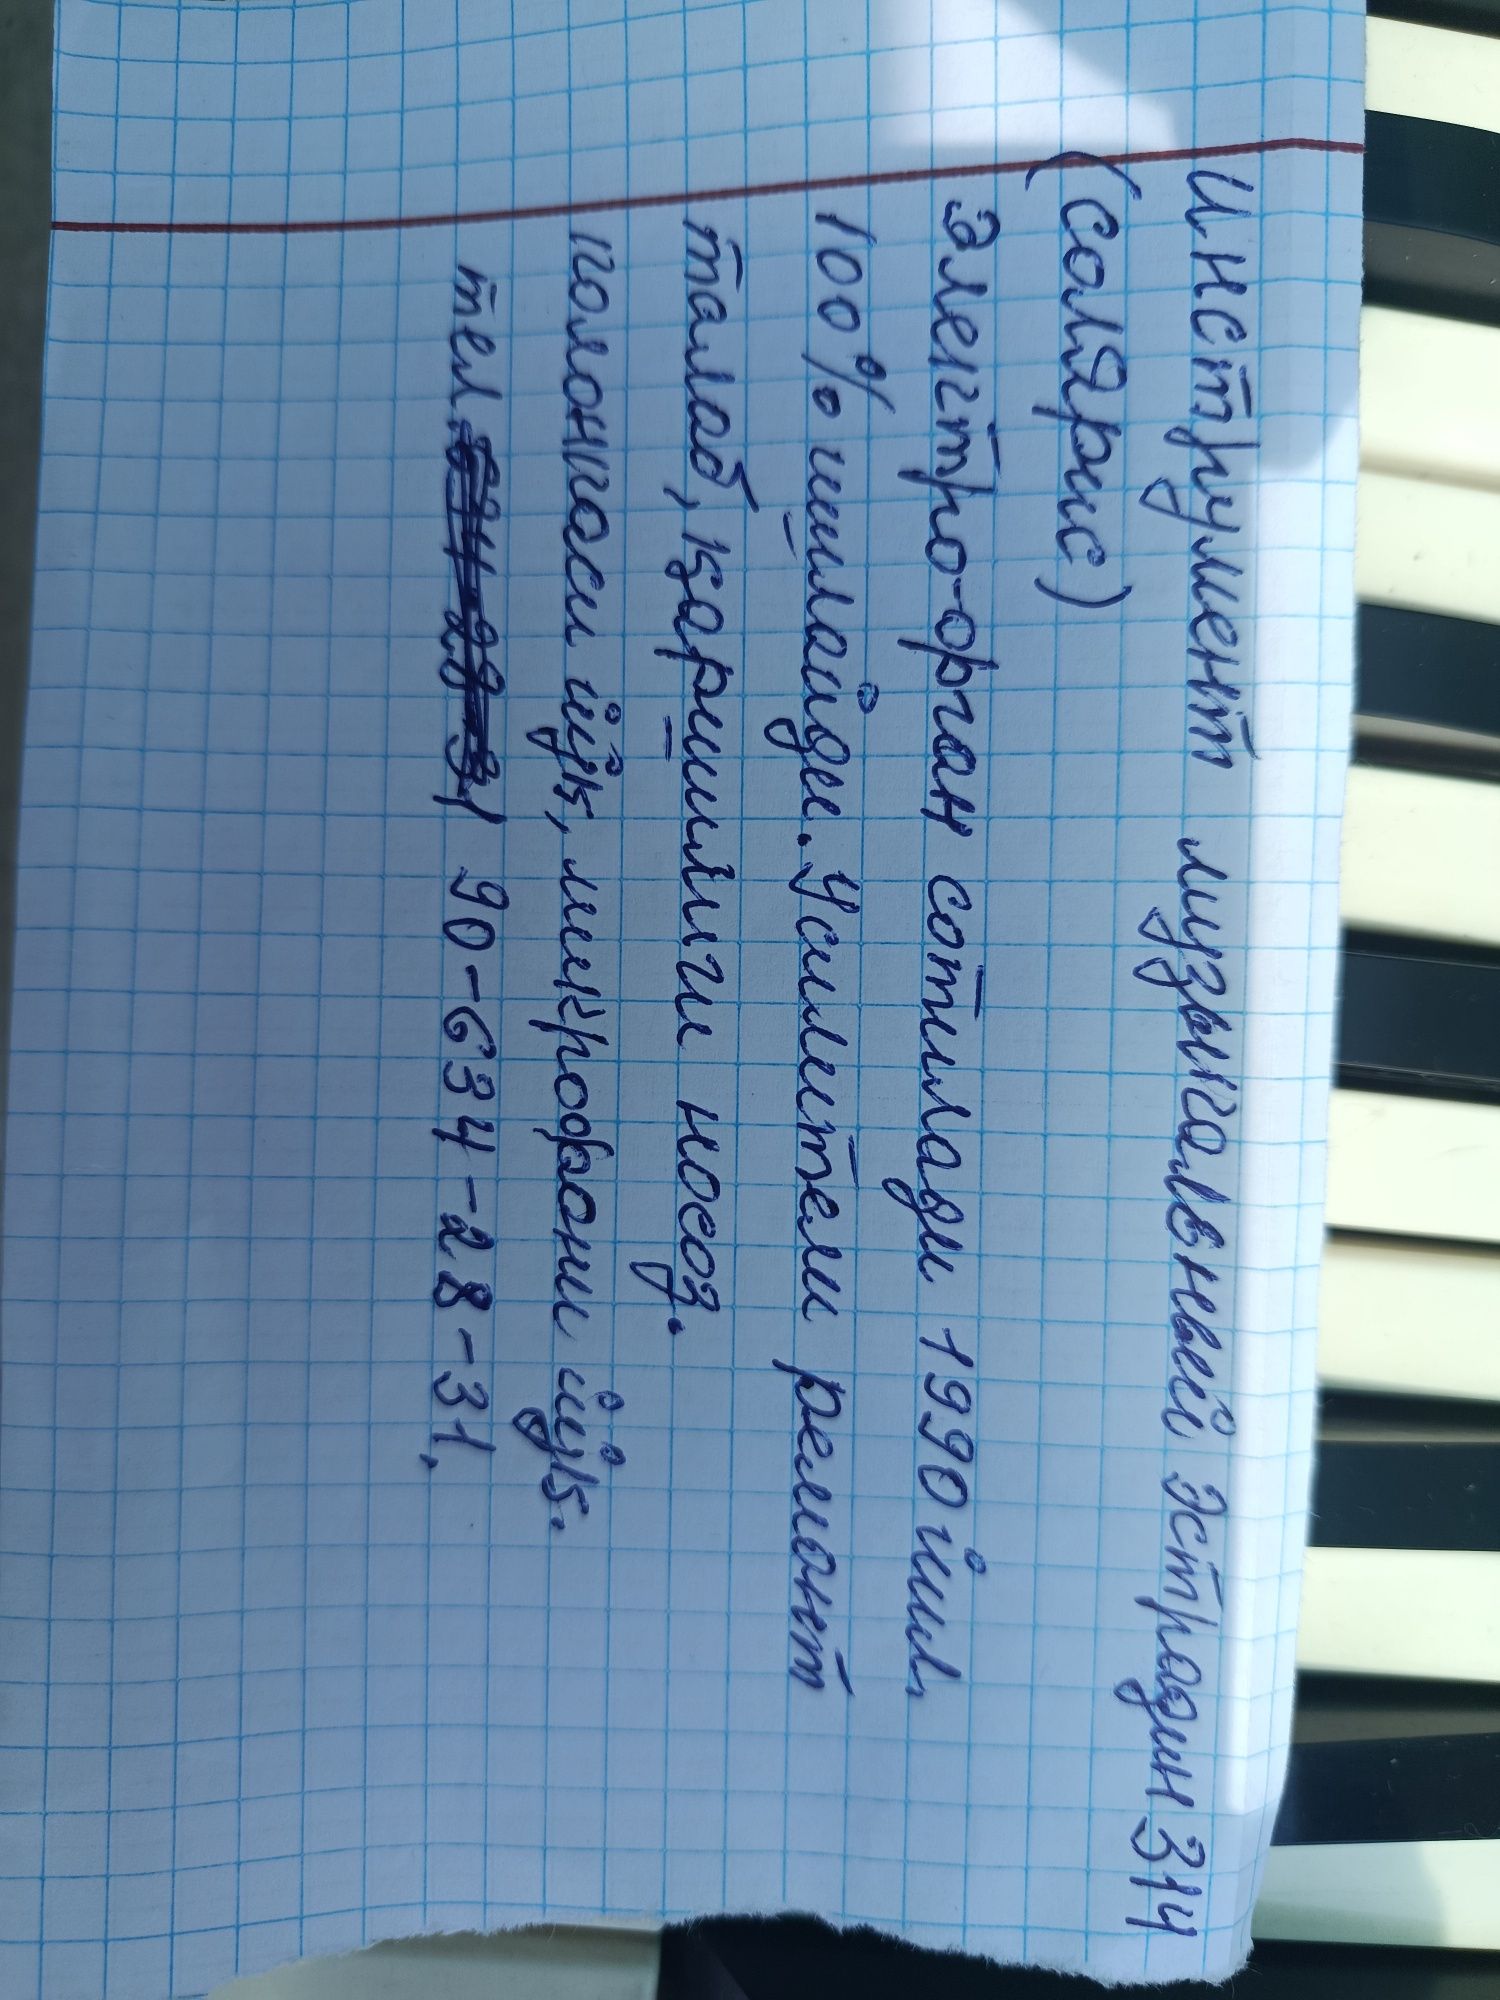 Инструмент музыкальный Эстрадин 314
(солЯрис)
Электро-орган сотилади 1990 йил.
100% ишлайди. Усилители ремонт
талаб, қаршилиги носоз.
колонкаси йўқ, микрофони йўқ.
тел. 90-634-28-31,